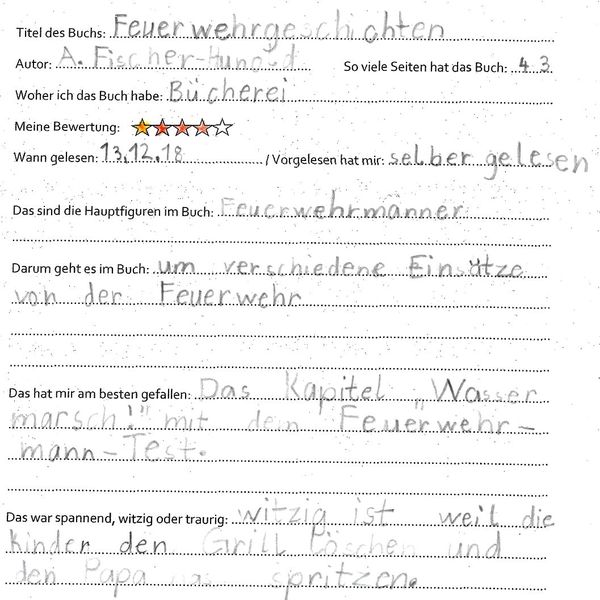 Titel des Buchs: Feuerwehrgeschichten
Autor: A. Fischer-Hunold So viele Seiten hat das Buch: 43
Woher ich das Buch habe: Bücherei
Meine Bewertung:
Wann gelesen: 13.12.18 / Vorgelesen hat mir: selber gelesen
Das sind die Hauptfiguren im Buch: Feuerwehrmänner
Darum geht es im Buch: um verschiedene Einsätze
von der Feuerwehr
Das hat mir am besten gefallen: Das Kapitel „Wasser
marsch!" mit dem Feuerwehr-
mann-Test.
Das war spannend, witzig oder traurig: witzig ist weil die
Kinder den Grill löschen und
den Papa nas spritzen.